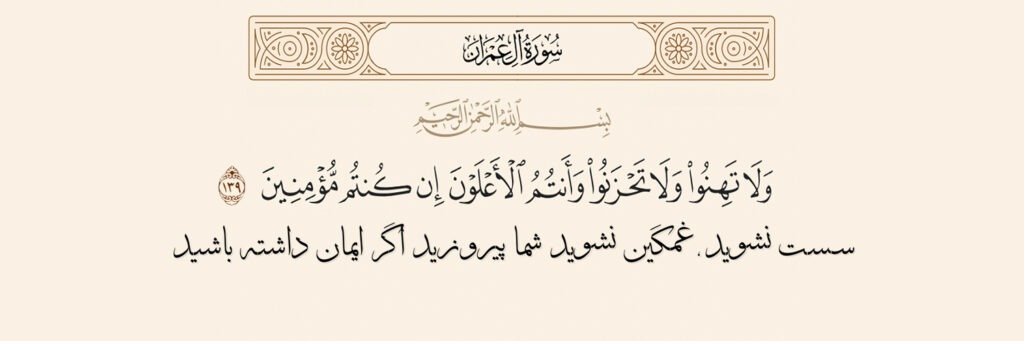 سُورَةُ آلِ عِمْرَانَ
بِسْمِ ٱللَّهِ ٱلرَّحْمَٰنِ ٱلرَّحِيمِ
وَلَا تَهِنُوا۟ وَلَا تَحْزَنُوا۟ وَأَنتُمُ ٱلْأَعْلَوْنَ إِن كُنتُم مُّؤْمِنِينَ ١٣٩
سست نشوید. غمگین نشوید شما پیروزید اگر ایمان داشته باشید